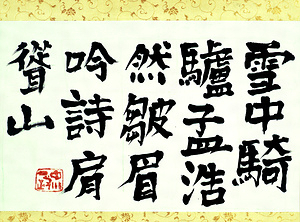 雪中騎
驢孟浩
然皺眉
吟詩肩
聳山